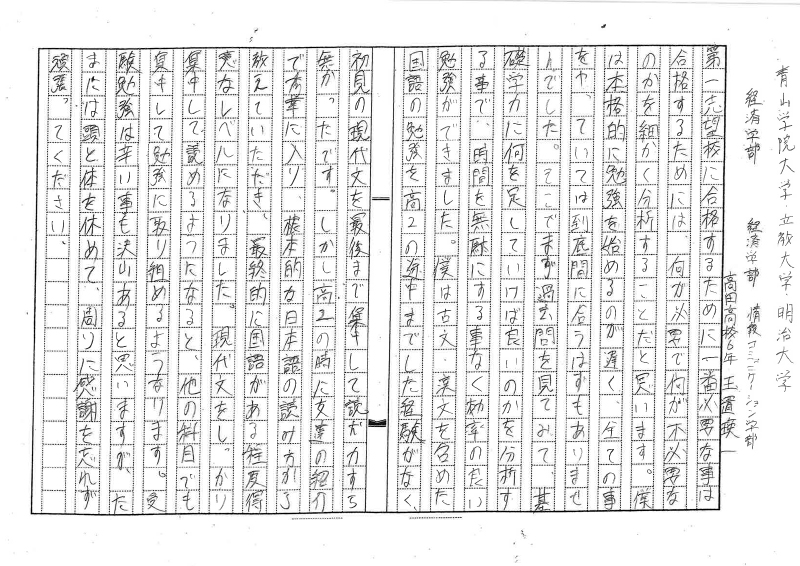 青山学院大学・立教大学・明治大学
経済学部　経済学部　情報コミュニケーション学部
高田高校6年　玉置
第一志望校に合格するために一番必要な事は
合格するためには、何が必要で何が不必要な
のかを細かく分析することだと思います。僕
は本格的に勉強を始めるのが遅く、全ての事
をやっていては到底間に合うはずもありませ
んでした。そこでまず過去問を見てみて、基
礎学力に何を足していけば良いのかを分析す
る事で、時間を無駄にする事なく効率のたい
勉強ができました。僕は古文・漢文を含めた
国語の勉強を高2の途中までした経験がなく、
初見の現代文を最後まで集中して読む力すら
無かったです。しかし高2の時に友達の紹介
で
に入り、根本的な日本語の読み方から
教えていただき、最終的に国語がある程度得
意なレベルになりました。現代文をしっかり
集中して読めるようになると、他の科目でも
集中して勉強に取り組めるようなります。受
験勉強は辛い事も沢山あると思いますが、た
まには頭と体を休めて、周りに感謝を忘れず
頑張ってください。